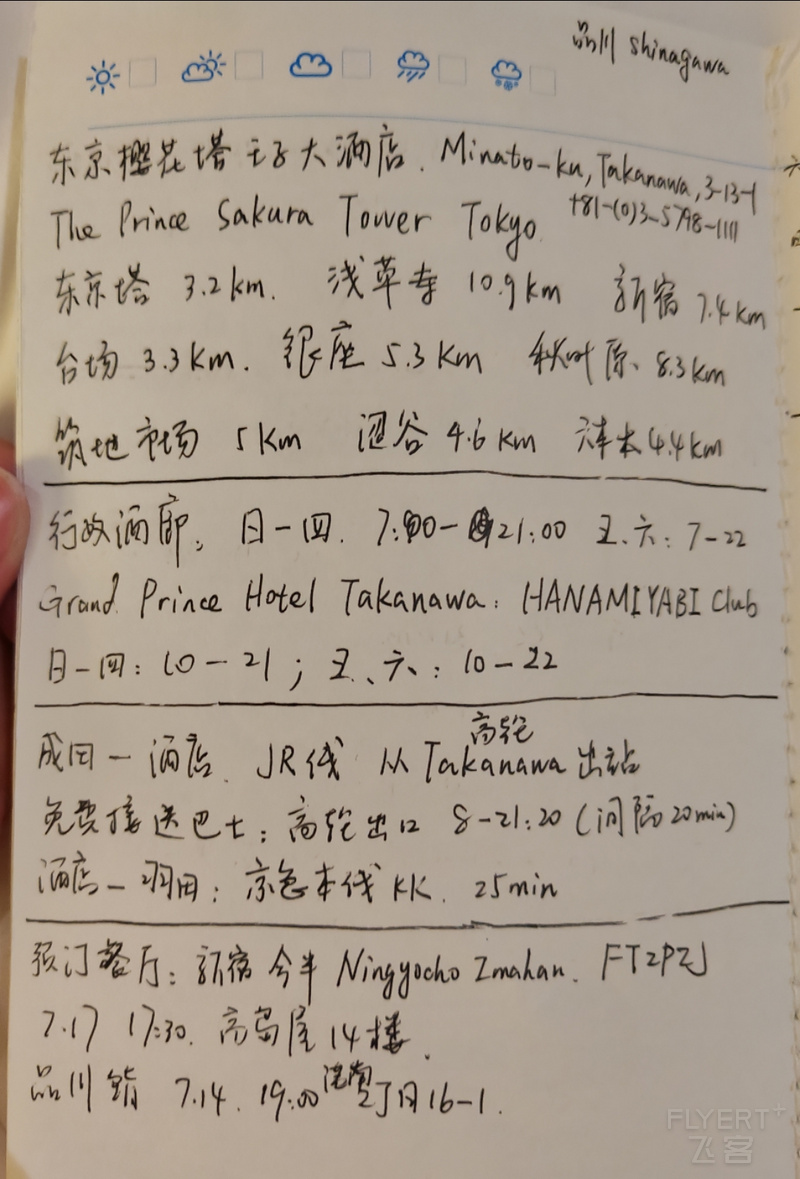 品川 Shinagawa
东京樱花塔王子大酒店. Minato-ku, Takanawa, 3-13-1
The Prince Sakura Tower Tokyo. +81-(0)3-5798-1111
东京塔 3.2km. 浅草寺 10.9km 新宿 7.4km
台场 3.3km. 银座 5.3km 秋叶原 8.3km
筑地市场 5km 涩谷 4.6km 六本木 4.4km
行政酒廊: 日一四. 7:00-21:00 五、六: 7-22
Grand Prince Hotel Takanawa: HANAMIYABI Club
日一四: 10-21; 五、六: 10-22
高轮
成田-酒店. JR线 从Takanawa出站
免费接送巴士: 高轮出口 8-21:20 (间隔20min)
酒店-羽田: 京急本线KK. 25min
预订餐厅: 新宿今半 Ningyocho Imahan. FT2PZJ
7.17 17:30. 高岛屋14楼.
品川 7.14. 19:00 丁目16-1.
FLYERT+
飞客